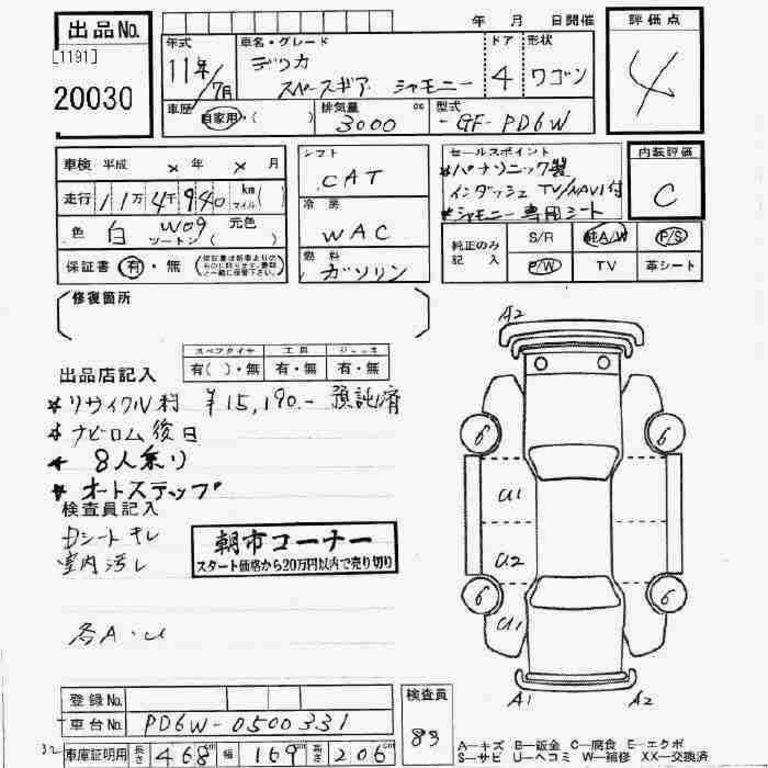 出品No.
[1191]
20030
年 月 日開催
年式
11年/7月
車名・グレード
デリカ
スペースギア シャモニー
ドア
4
形状
ワゴン
評価点
4
車歴
自家用・( )
排気量
3000 cc
型式
-GF- PD6W
車検 平成 × 年 × 月
走行 11万4千940 km マイル(
色 白 W09 元色
ツートン( )
保証書 有・無 (保証書は新車よりのものに限ります。書類と一緒に保管下さい。)
シフト
CAT
冷房
WAC
燃料
ガソリン
セールスポイント
*パナソニック製
インダッシュ TV/NAVI付
*シャモニー専用シート
内装評価
C
純正のみ
記入
S/R 純A/W P/S
P/W TV 革シート
修復箇所
スペアタイヤ 工具 ジャッキ
有( )・無 有・無 有・無
出品店記入
*リサイクル料 ¥15,190.- 預託済
*ナビロム後日
*8人乗り
*オートステップ
検査員記入
Dシートキレ
室内汚レ
朝市コーナー
スタート価格から20万円以内で売り切り
各A・U
A2
6 6
U1
U2
6 6
U1
A1 A2
登録No.
車台No. PD6W-0500331
32 車庫証明用 長さ 468cm 幅 169cm 高さ 206cm
検査員
83
A―キズ B―鈑金 C―腐食 E―エクボ
S―サビ U―ヘコミ W―補修 XX―交換済